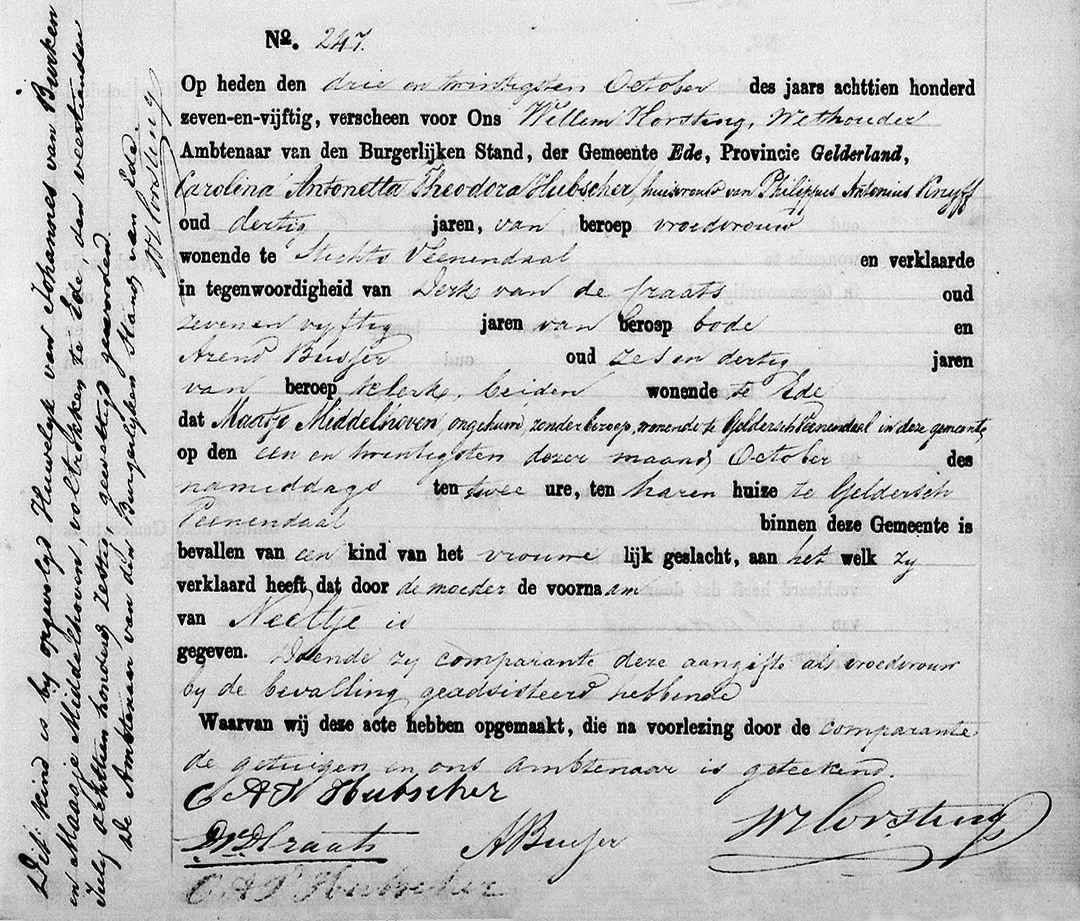 No. 247.
Op heden den drie en twintigsten October des jaars achttien honderd
zeven-en-vijftig, verscheen voor Ons Willem Horsting, Wethouder
Ambtenaar van den Burgerlijken Stand, der Gemeente Ede, Provincie Gelderland,
Carolina Antonetta Theodora Hubscher, huisvrouw van Philippus Antonius Knyff
oud dertig jaren, van beroep vroedvrouw
wonende te Stichts Veenendaal en verklaarde
in tegenwoordigheid van Derk van de Craats oud
zeven en vyftig jaren van beroep bode en
Arend Buijser oud zes en dertig jaren
van beroep klerk, beiden wonende te Ede
dat Maatje Middelhoven, ongehuwd, zonder beroep, wonende te Geldersch Veenendaal in deze gemeente,
op den een en twintigsten dezer maand October des
namiddags ten twee ure, ten haren huize te Geldersch
Veenendaal binnen deze Gemeente is
bevallen van een kind van het vrouwe lijk geslacht, aan het welk zy
verklaard heeft dat door de moeder de voornaam
van Neeltje is
gegeven. Doende zy comparante deze aangifte als vroedvrouw
by de bevalling geadsisteerd hebbende
Waarvan wij deze acte hebben opgemaakt, die na voorlezing door de comparante
de getuigen en ons ambtenaar is geteekend.
C A T Hubscher
DvD Craats A Buijser W Horsting
C A T Hubscher
Dit kind is bij opgevolgd Huwelijk van Johannes van Burken
en Maatje Middelhoven, voltrokken te Ede, den veertienden
July achttien honderd zestig, gewettigd geworden.
de Ambtenaar van den Burgerlijken Stand van Ede
W Horsting